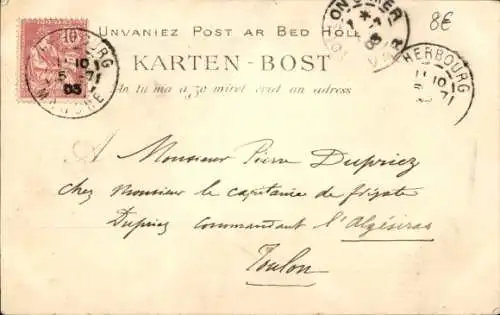 UNVANIEZ POST AR BED HOLL
8€
KARTEN-BOST
An tu ma a zo miret evit an adress
10
CHERBOURG
MANCHE
03
HERBOURG
A Monsieur Pierre Dupriez
chez Monsieur le capitaine de frégate
Dupriez commandant l'Algésiras
Toulon